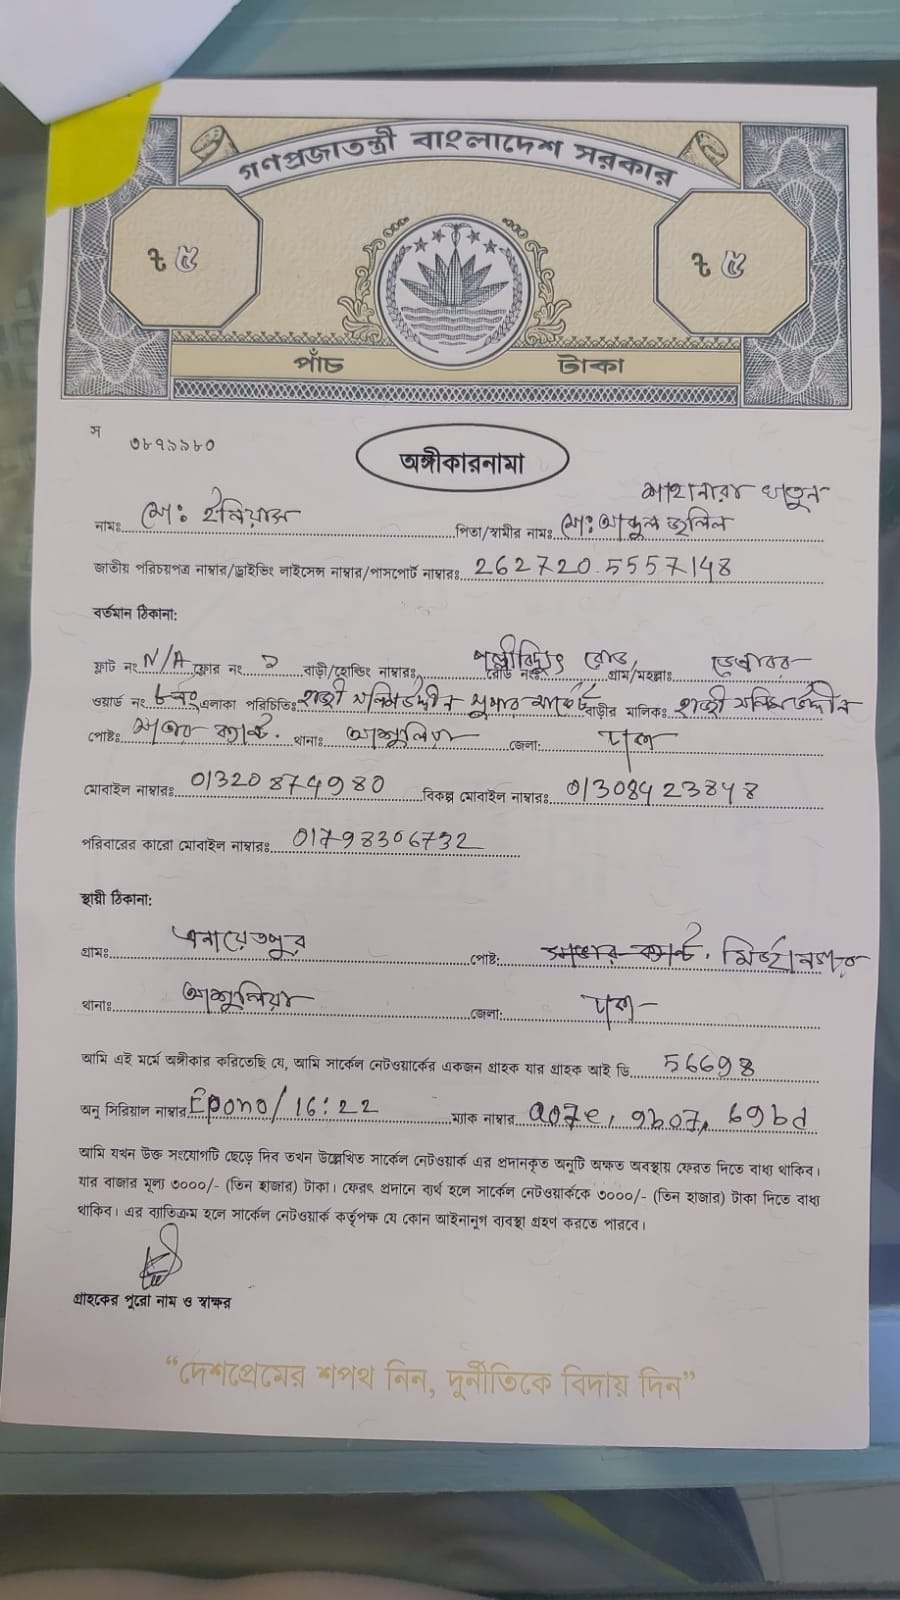 গণপ্রজাতন্ত্রী বাংলাদেশ সরকার
৳ ৫ ৳ ৫
পাঁচ টাকা
স
৩৮৭৯৯৮০
অঙ্গীকারনামা
খাতুন
নামঃ মোঃ ইলিয়াস পিতা/স্বামীর নামঃ মোঃ আব্দুল জলিল
জাতীয় পরিচয়পত্র নাম্বার/ড্রাইভিং লাইসেন্স নাম্বার/পাসপোর্ট নাম্বারঃ 262720.5557148
বর্তমান ঠিকানা:
ফ্লাট নং N/A ফ্লোর নং ১ বাড়ী/হোল্ডিং নাম্বারঃ পল্লীবিদ্যুৎ রোড রোড নং গ্রাম/মহল্লাঃ ডেন্ডাবর
ওয়ার্ড নং ৮নং এলাকা পরিচিতিঃ হাজী সুপার মার্কেট বাড়ীর মালিকঃ হাজী
পোষ্টঃ সাভার ক্যান্ট. থানাঃ আশুলিয়া জেলা: ঢাকা
মোবাইল নাম্বারঃ 01320874980 বিকল্প মোবাইল নাম্বারঃ 01308423848
পরিবারের কারো মোবাইল নাম্বারঃ 01798306732
স্থায়ী ঠিকানা:
গ্রামঃ এনায়েতপুর পোষ্ট: সাভার ক্যান্ট. মির্জানগর
থানাঃ আশুলিয়া জেলা: ঢাকা
আমি এই মর্মে অঙ্গীকার করিতেছি যে, আমি সার্কেল নেটওয়ার্কের একজন গ্রাহক যার গ্রাহক আই ডি 56698
অনু সিরিয়াল নাম্বার Epono/16:22 ম্যাক নাম্বার a07e, 9b07, 69bd
আমি যখন উক্ত সংযোগটি ছেড়ে দিব তখন উল্লেখিত সার্কেল নেটওয়ার্ক এর প্রদানকৃত অনুটি অক্ষত অবস্থায় ফেরত দিতে বাধ্য থাকিব।
যার বাজার মূল্য ৩০০০/- (তিন হাজার) টাকা। ফেরৎ প্রদানে ব্যর্থ হলে সার্কেল নেটওয়ার্ককে ৩০০০/- (তিন হাজার) টাকা দিতে বাধ্য
থাকিব। এর ব্যতিক্রম হলে সার্কেল নেটওয়ার্ক কর্তৃপক্ষ যে কোন আইনানুগ ব্যবস্থা গ্রহণ করতে পারবে।
গ্রাহকের পুরো নাম ও স্বাক্ষর
“দেশপ্রেমের শপথ নিন, দুর্নীতিকে বিদায় দিন”